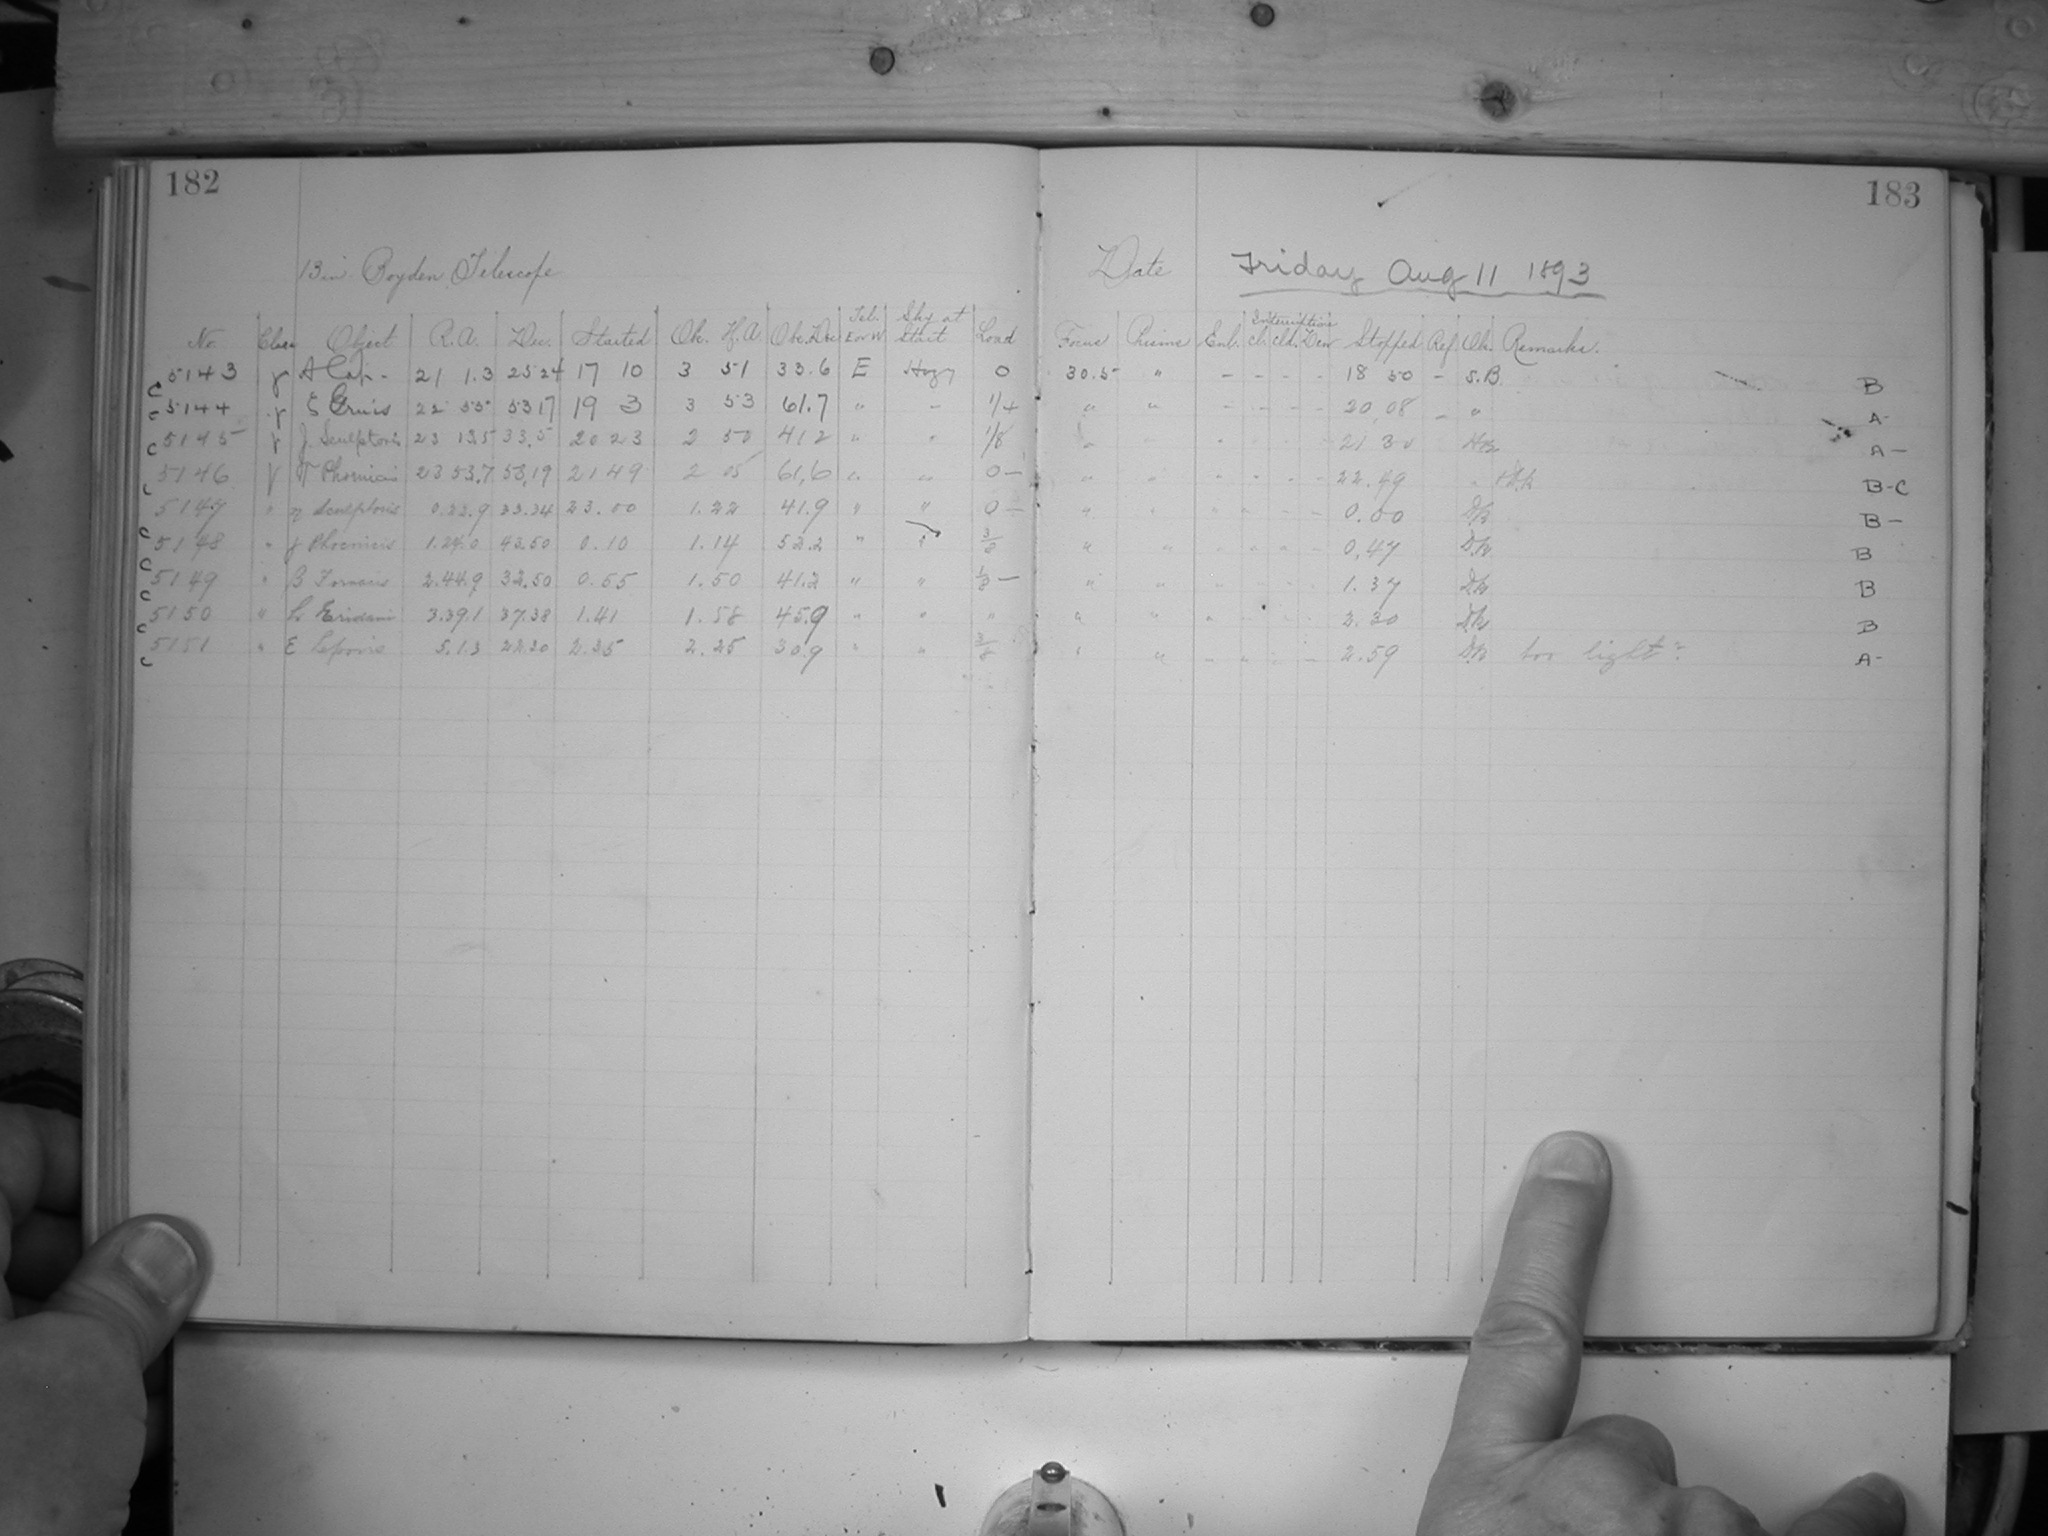 182
13 in Boyden Telescope
No. Class Object R.A. Dec. Started Obs. H.A. Obs. Dec Tel. E or W Sky at Start Load
C 5143 γ A Cap. 21 1.3 25 24 17 10 3 51 33.6 E Hazy 0
C 5144 γ ζ Gruis 22 55 53 17 19 3 3 53 61.7 " - 1/4
C 5145 γ γ Sculptoris 23 13.5 33.5 20 23 2 50 41.2 " " 1/8
5146 γ π Phoenicis 23 53.7 53.19 21 49 2 05 61.6 " " 0 -
5147 " η Sculptoris 0.22.9 33.34 23.00 1.22 41.9 " " 0
C 5148 " γ Phoenicis 1.24.0 43.50 0.10 1.14 52.2 " " 3/8
C 5149 " β Fornacis 2.44.9 32.50 0.55 1.50 41.2 " " 1/8 -
C 5150 " h Eridani 3.39.1 37.38 1.41 1.58 45.9 " " "
C 5151 " ε Leporis 5.1.3 22.30 2.35 2.25 30.9 " " 3/8
183
Date Friday Aug 11 1893
Focus Prisms Enl. Interruptions Cl. Cld. Dew Stopped Ref. Obs. Remarks.
30.5 " - - - - 18 50 - S.B. B
" " - - - - 20.08 - " A-
" 21 30 A-
" " - - - - 22.49 B-C
" " - - - - 0.00 B-
" " - - - - 0.47 B
" " - - - - 1.37 B
" " - - - - 2.30 B
" " - - - - 2.59 too light? A-